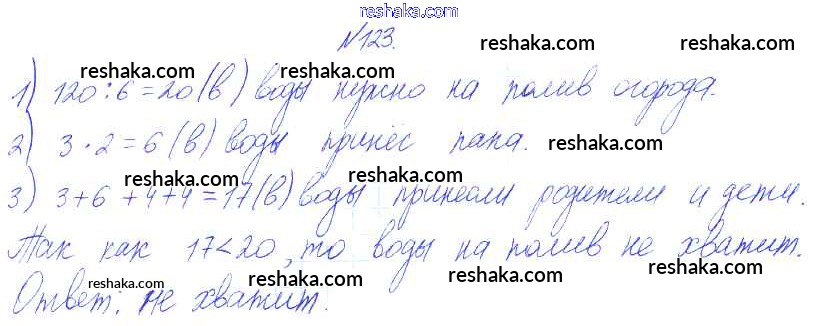 reshaka.com
№123. reshaka.com reshaka.com
reshaka.com reshaka.com reshaka.com
1) 120:6=20(в) воды нужно на полив огорода.
2) 3·2=6(в) воды принёс папа. reshaka.com
reshaka.com reshaka.com reshaka.com
3) 3+6+4+4=17(в) воды принесли родители и дети.
Так как 17<20, то воды на полив не хватит.
reshaka.com reshaka.com reshaka.com reshaka.com
Ответ: не хватит.